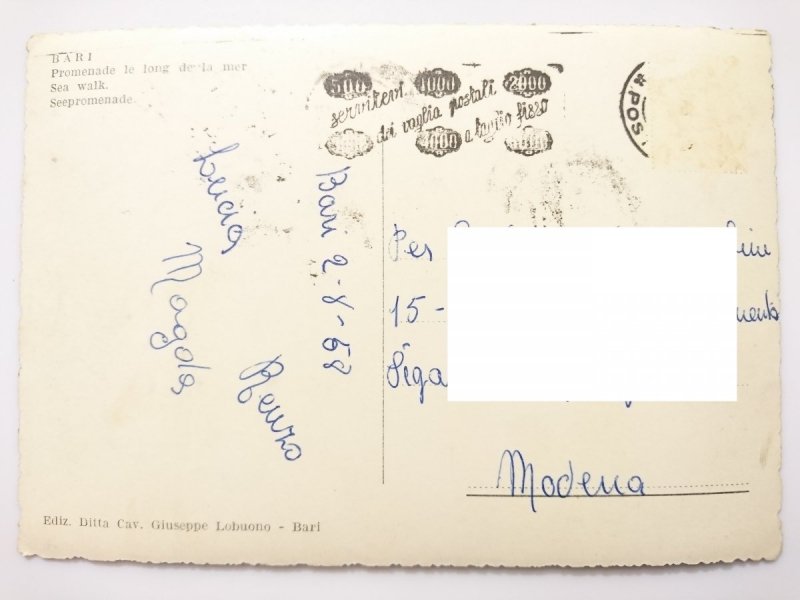 BARI
Promenade le long de la mer
Sea walk.
Seepromenade
500 1000 2000
servitevi
dei vaglia postali
a taglio fisso
POS
Bari 2-8-68
Lucia
Magda
Renzo
Per
15 -
Modena
Ediz. Ditta Cav. Giuseppe Lobuono - Bari